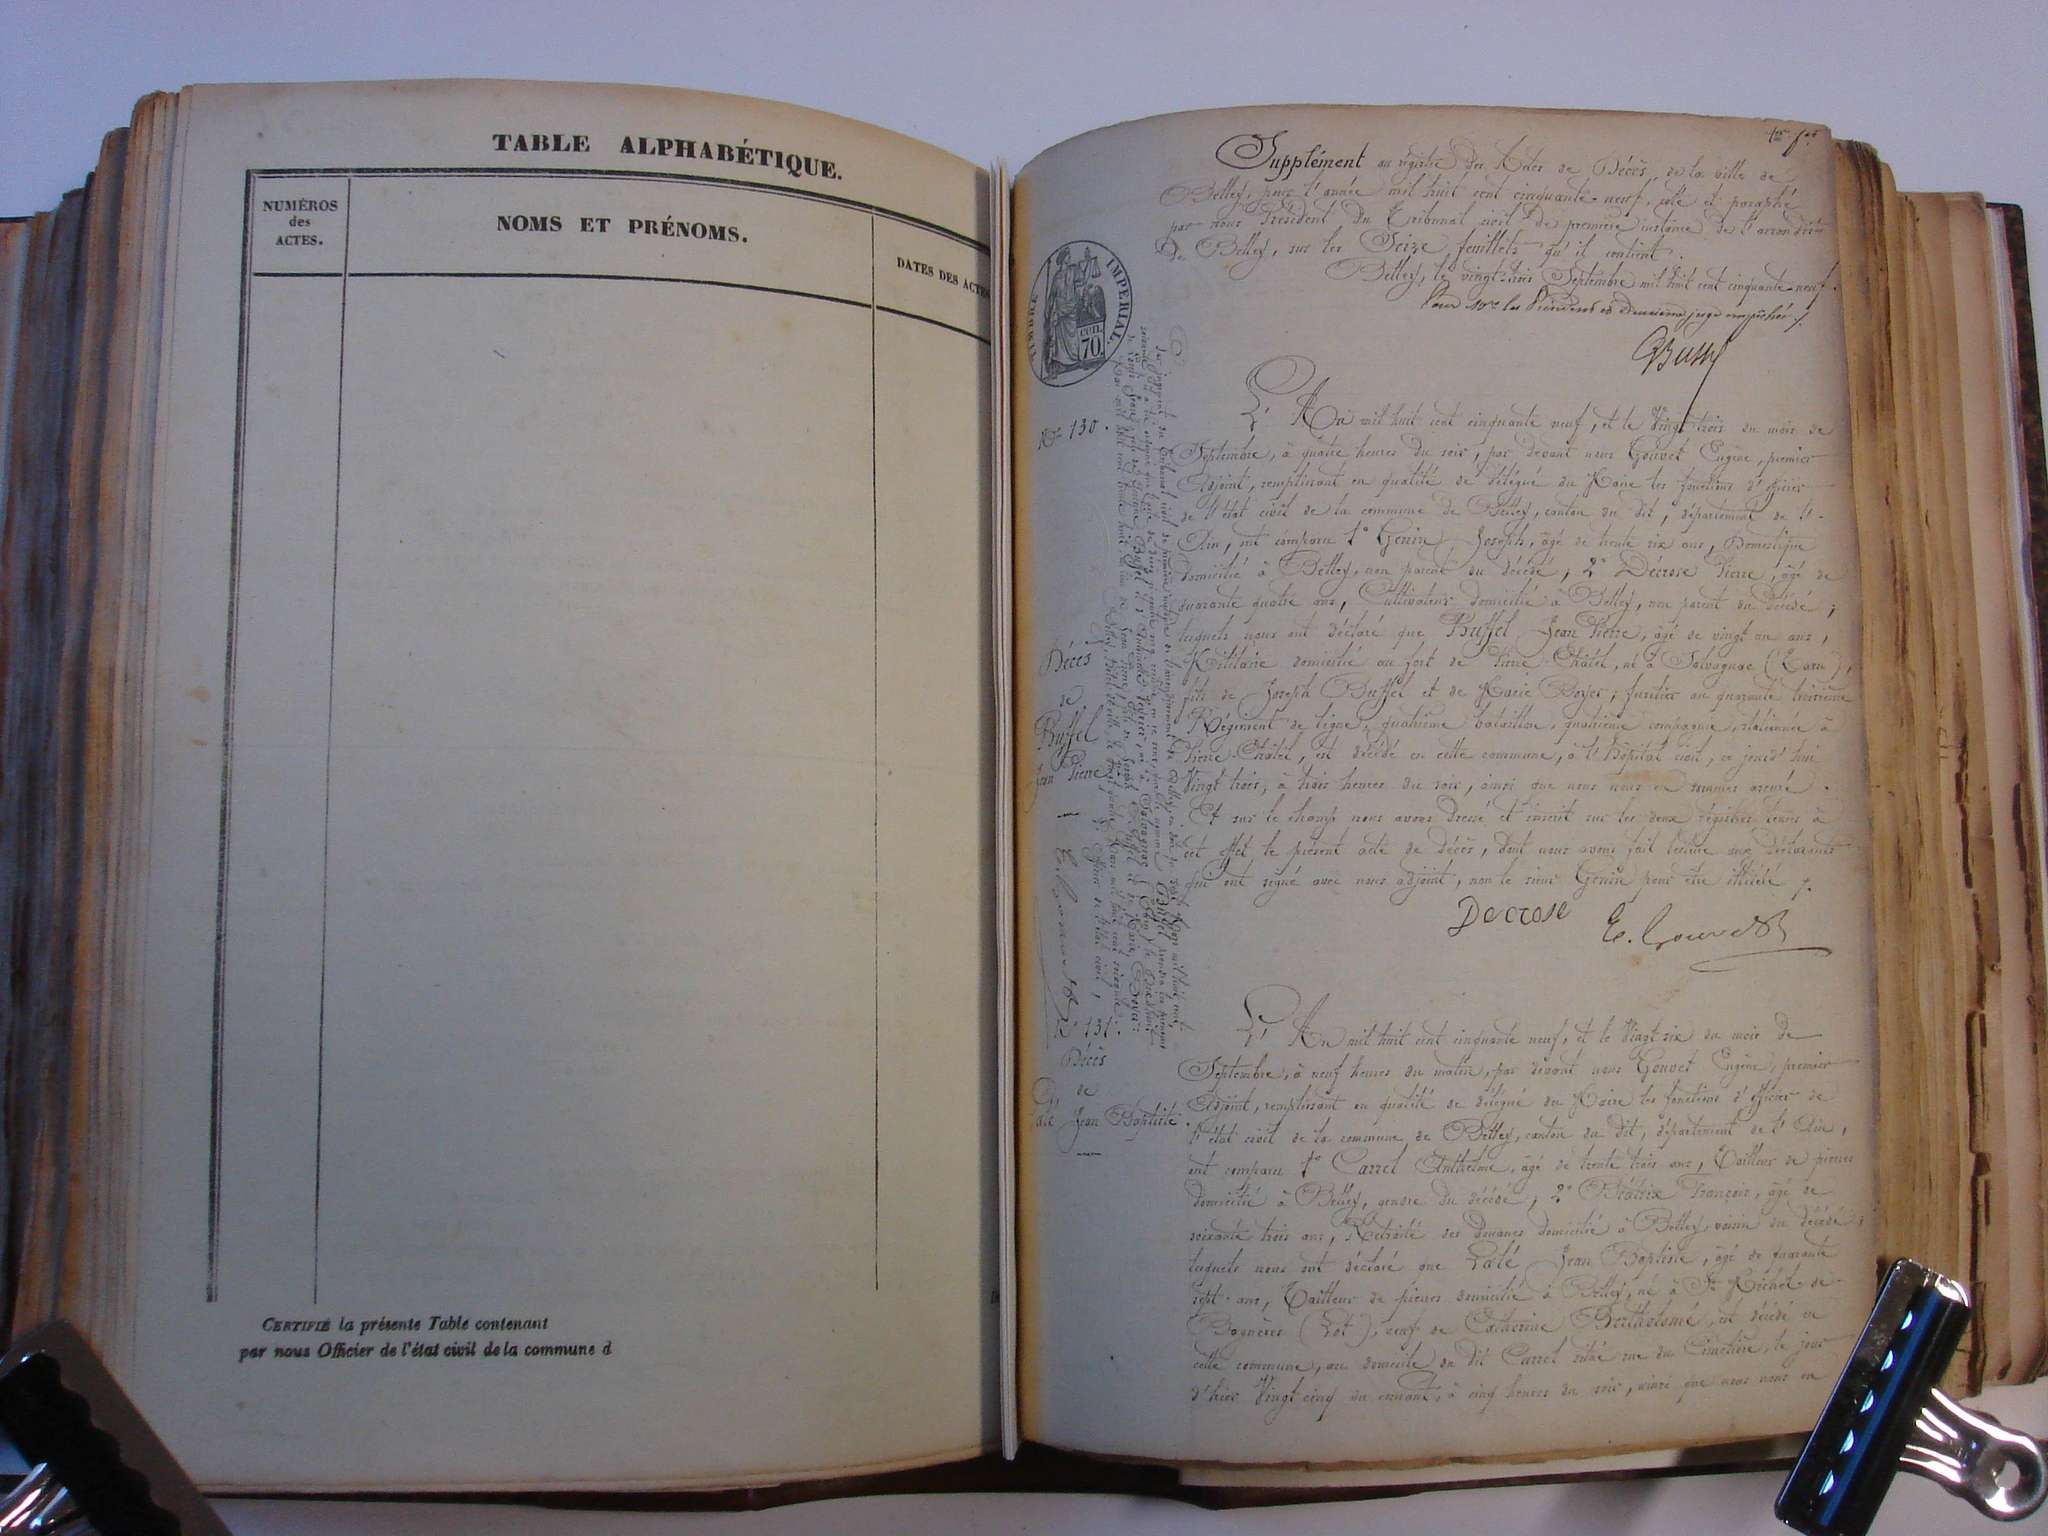 TABLE ALPHABÉTIQUE.
NUMÉROS
des
ACTES.
NOMS ET PRÉNOMS.
DATES DES ACTES
CERTIFIÉ la présente Table contenant
par nous Officier de l'état civil de la commune d
Supplément au régistre des Actes de Décès, de la ville de
Belley, pour l'année mil huit cent cinquante-neuf, coté et paraphé
par nous Président du Tribunal civil de première instance de l'arrondissmt
de Belley, sur les Seize feuillets qu'il contient.
Belley, le vingt-trois Septembre mil huit cent cinquante-neuf.
TIMBRE IMPERIAL.
CEN.
70.
No 130.
Décès
de
Buffel
Jean Pierre
L'An mil huit cent cinquante neuf, et le Vingt trois du mois de
Septembre, à quatre heures du soir, par devant nous Gouvet Eugène, premier
Adjoint, remplissant en qualité de délégué du Maire les fonctions d'officier
de l'état civil de la commune de Belley, canton du dit, département de l'-
Ain, ont comparu 1° Genin Joseph, âgé de trente six ans, Domestique
domicilié à Belley, non parent du décédé; 2° Décrose Pierre, âgé de
quarante quatre ans, Cultivateur domicilié à Belley, non parent du décédé;
lesquels nous ont déclaré que Buffel Jean Pierre, âgé de vingt un ans,
Militaire domicilié au fort de Pierre-Châtel, né à Salvagnac (Tarn),
fils de Joseph Buffel et de Marie Boyer; fusilier au quarante troisième
Régiment de ligne, quatrième bataillon, quatrième compagnie, stationnée à
Pierre-Châtel, est décédé en cette commune, à l'Hôpital civil, ce jourd'hui
Vingt trois, à trois heures du soir, ainsi que nous nous en sommes assuré.
Et sur le champ nous avons dressé et inscrit sur les deux régistres tenus à
cet effet le présent acte de décès, dont nous avons fait lecture aux déclarants
qui ont signé avec nous adjoint, non le sieur Genin pour être illitéré
Decrose E. Gouvet
131.
Décès
de
Jean Baptiste.
L'An mil huit cent cinquante neuf, et le Vingt six du mois de
Septembre, à neuf heures du matin, par devant nous Gouvet Eugène, premier
Adjoint, remplissant en qualité de délégué du Maire les fonctions d'officier de
l'état civil de la commune de Belley, canton du dit, département de l'Ain,
ont comparu 1° Carrel Anthelme, âgé de trente trois ans, Tailleur de pierres
domicilié à Belley, gendre du décédé; 2° Béatrix François, âgé de
soixante trois ans, Retraité des Douanes domicilié à Belley, voisin du décédé;
lesquels nous ont déclaré que Jean Baptiste, âgé de quarante
sept ans, Tailleur de pierres domicilié à Belley, né à St Michel-de-
Bagnères (Lot), veuf de Catherine Bertholomé, est décédé en
cette commune, au domicile du dit Carrel situé rue du Cimetière, le jour
d'hier Vingt cinq du courant, à cinq heures du soir, ainsi que nous nous en